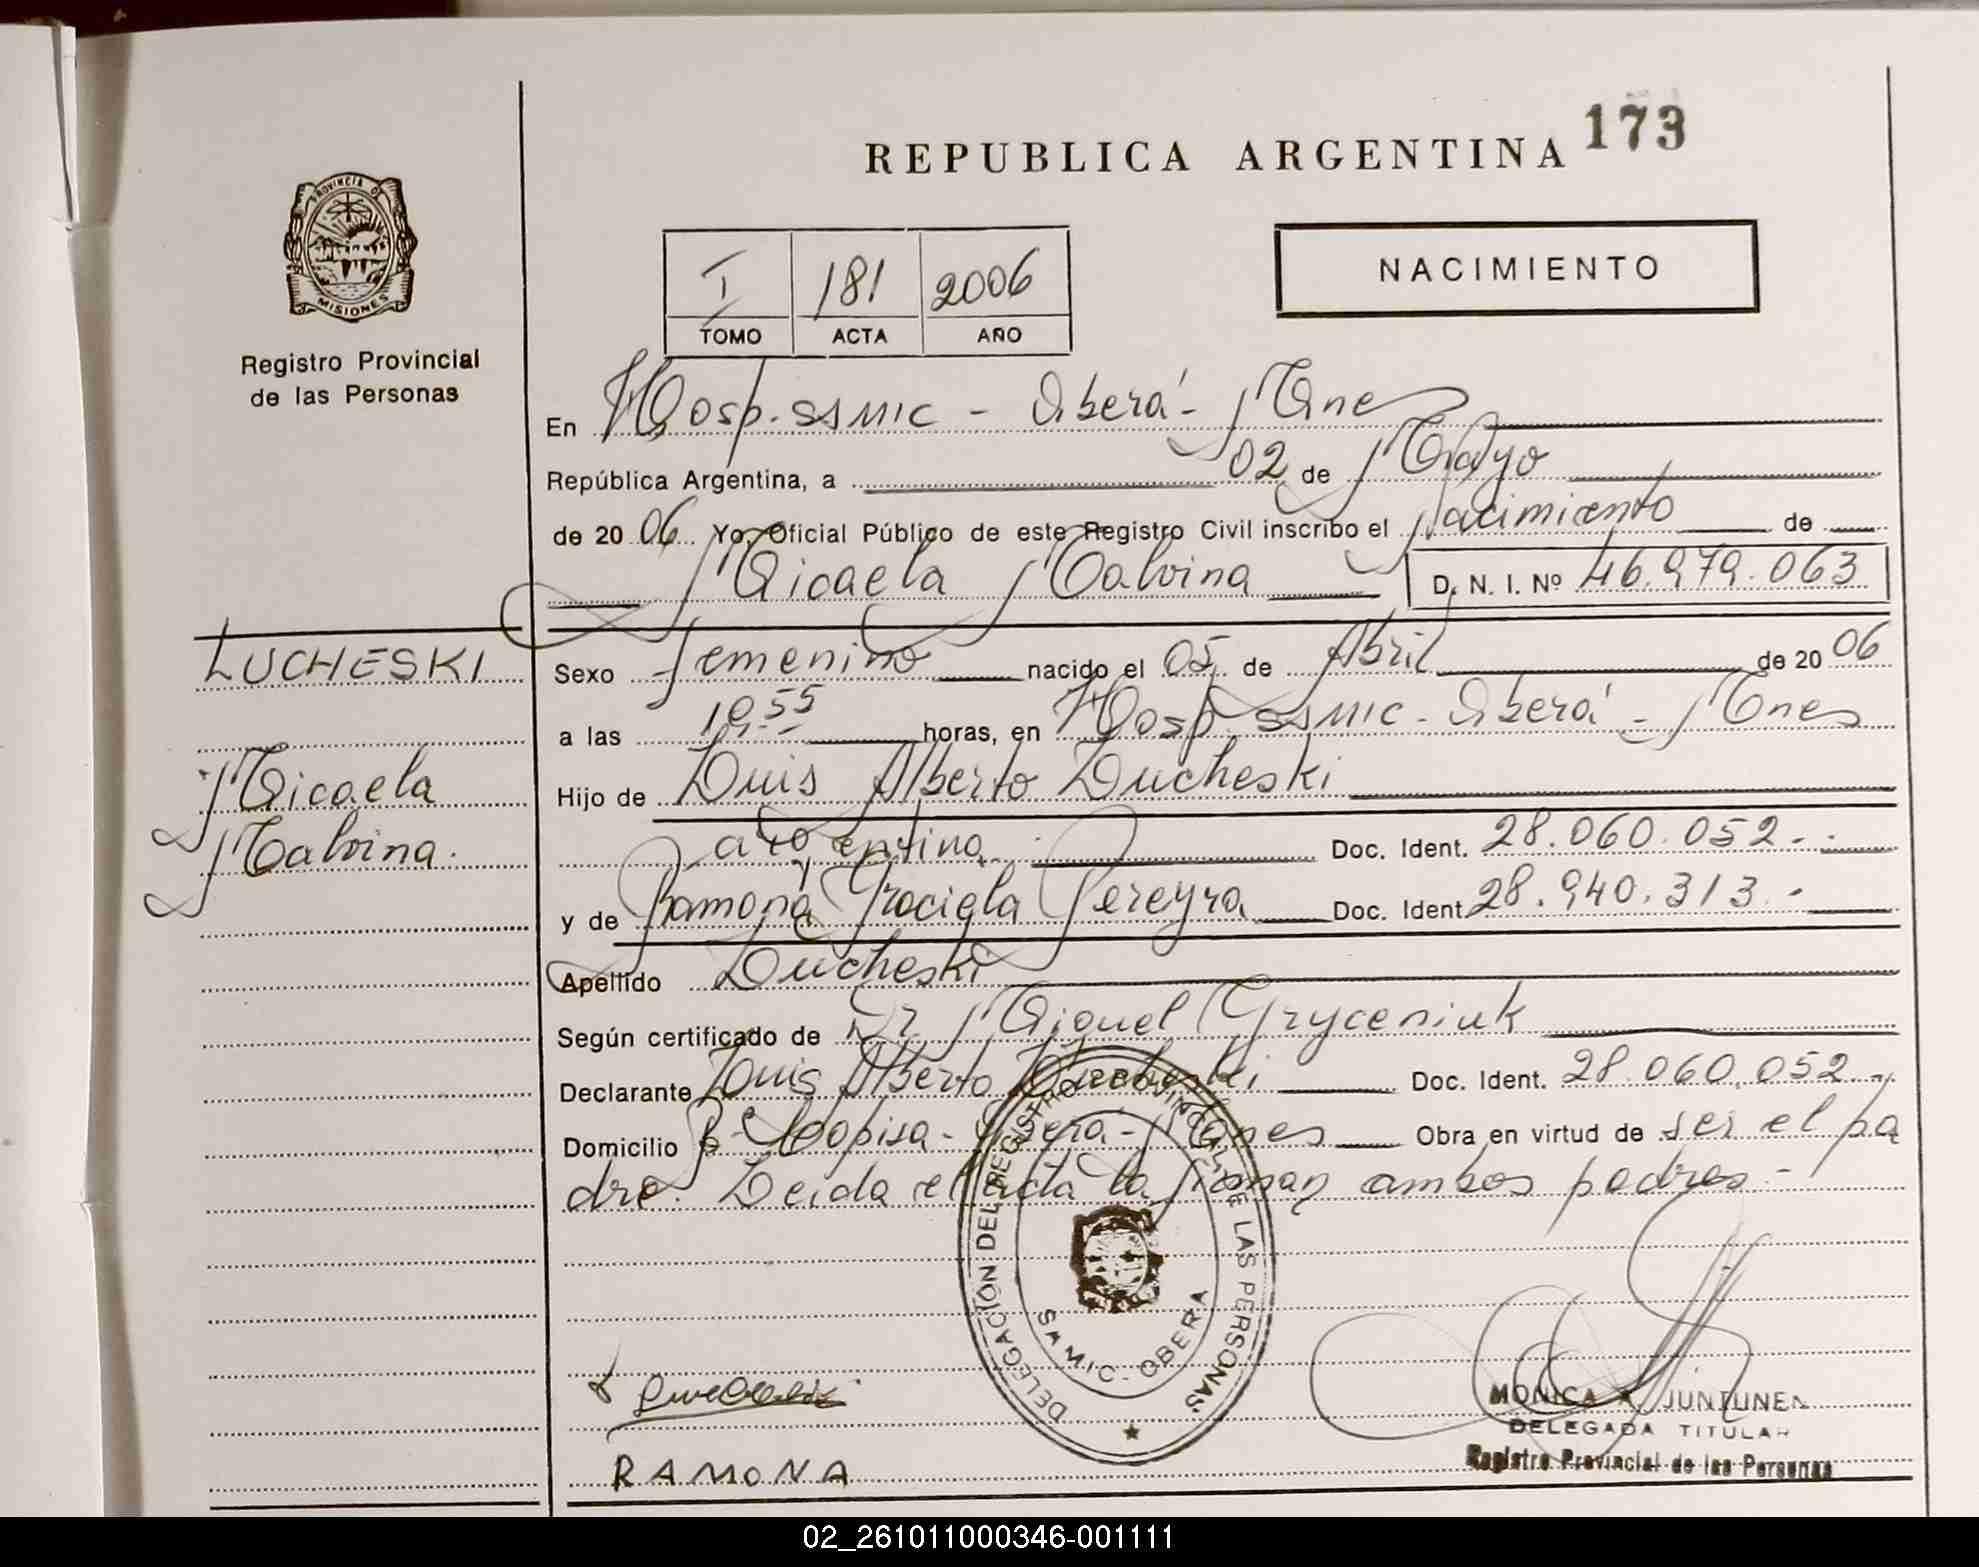 REPUBLICA ARGENTINA 173
PROVINCIA DE
MISIONES
Registro Provincial
de las Personas
I 181 2006
TOMO ACTA AÑO
NACIMIENTO
En Hosp. SAMIC - Oberá - Mnes
República Argentina, a 02 de Mayo
de 20 06 Yo, Oficial Público de este Registro Civil inscribo el Nacimiento de
Micaela Malvina D. N. I. Nº 46.979.063
LUCHESKI
Micaela
Malvina.
Sexo femenino nacido el 05 de Abril de 20 06
a las horas, en Hosp. SAMIC - Oberá - Mnes
Hijo de Luis Alberto Lucheski
argentino Doc. Ident. 28.060.052.-
y de Ramona Graciela Pereyra Doc. Ident. 28.940.313.-
Apellido Lucheski
Según certificado de Dr. Miguel Gryceniuk
Declarante Louis Alberto Lucheski Doc. Ident. 28.060.052.-
Domicilio Oberá - Mnes Obra en virtud de ser el pa
dre. Leida el acta la firman ambos padres.-
DELEGACIÓN DEL REGISTRO PROVINCIAL DE LAS PERSONAS
SAMIC - OBERA
RAMONA
MONICA
DELEGADA TITULAR
Registro Provincial de las Personas
02_261011000346-001111